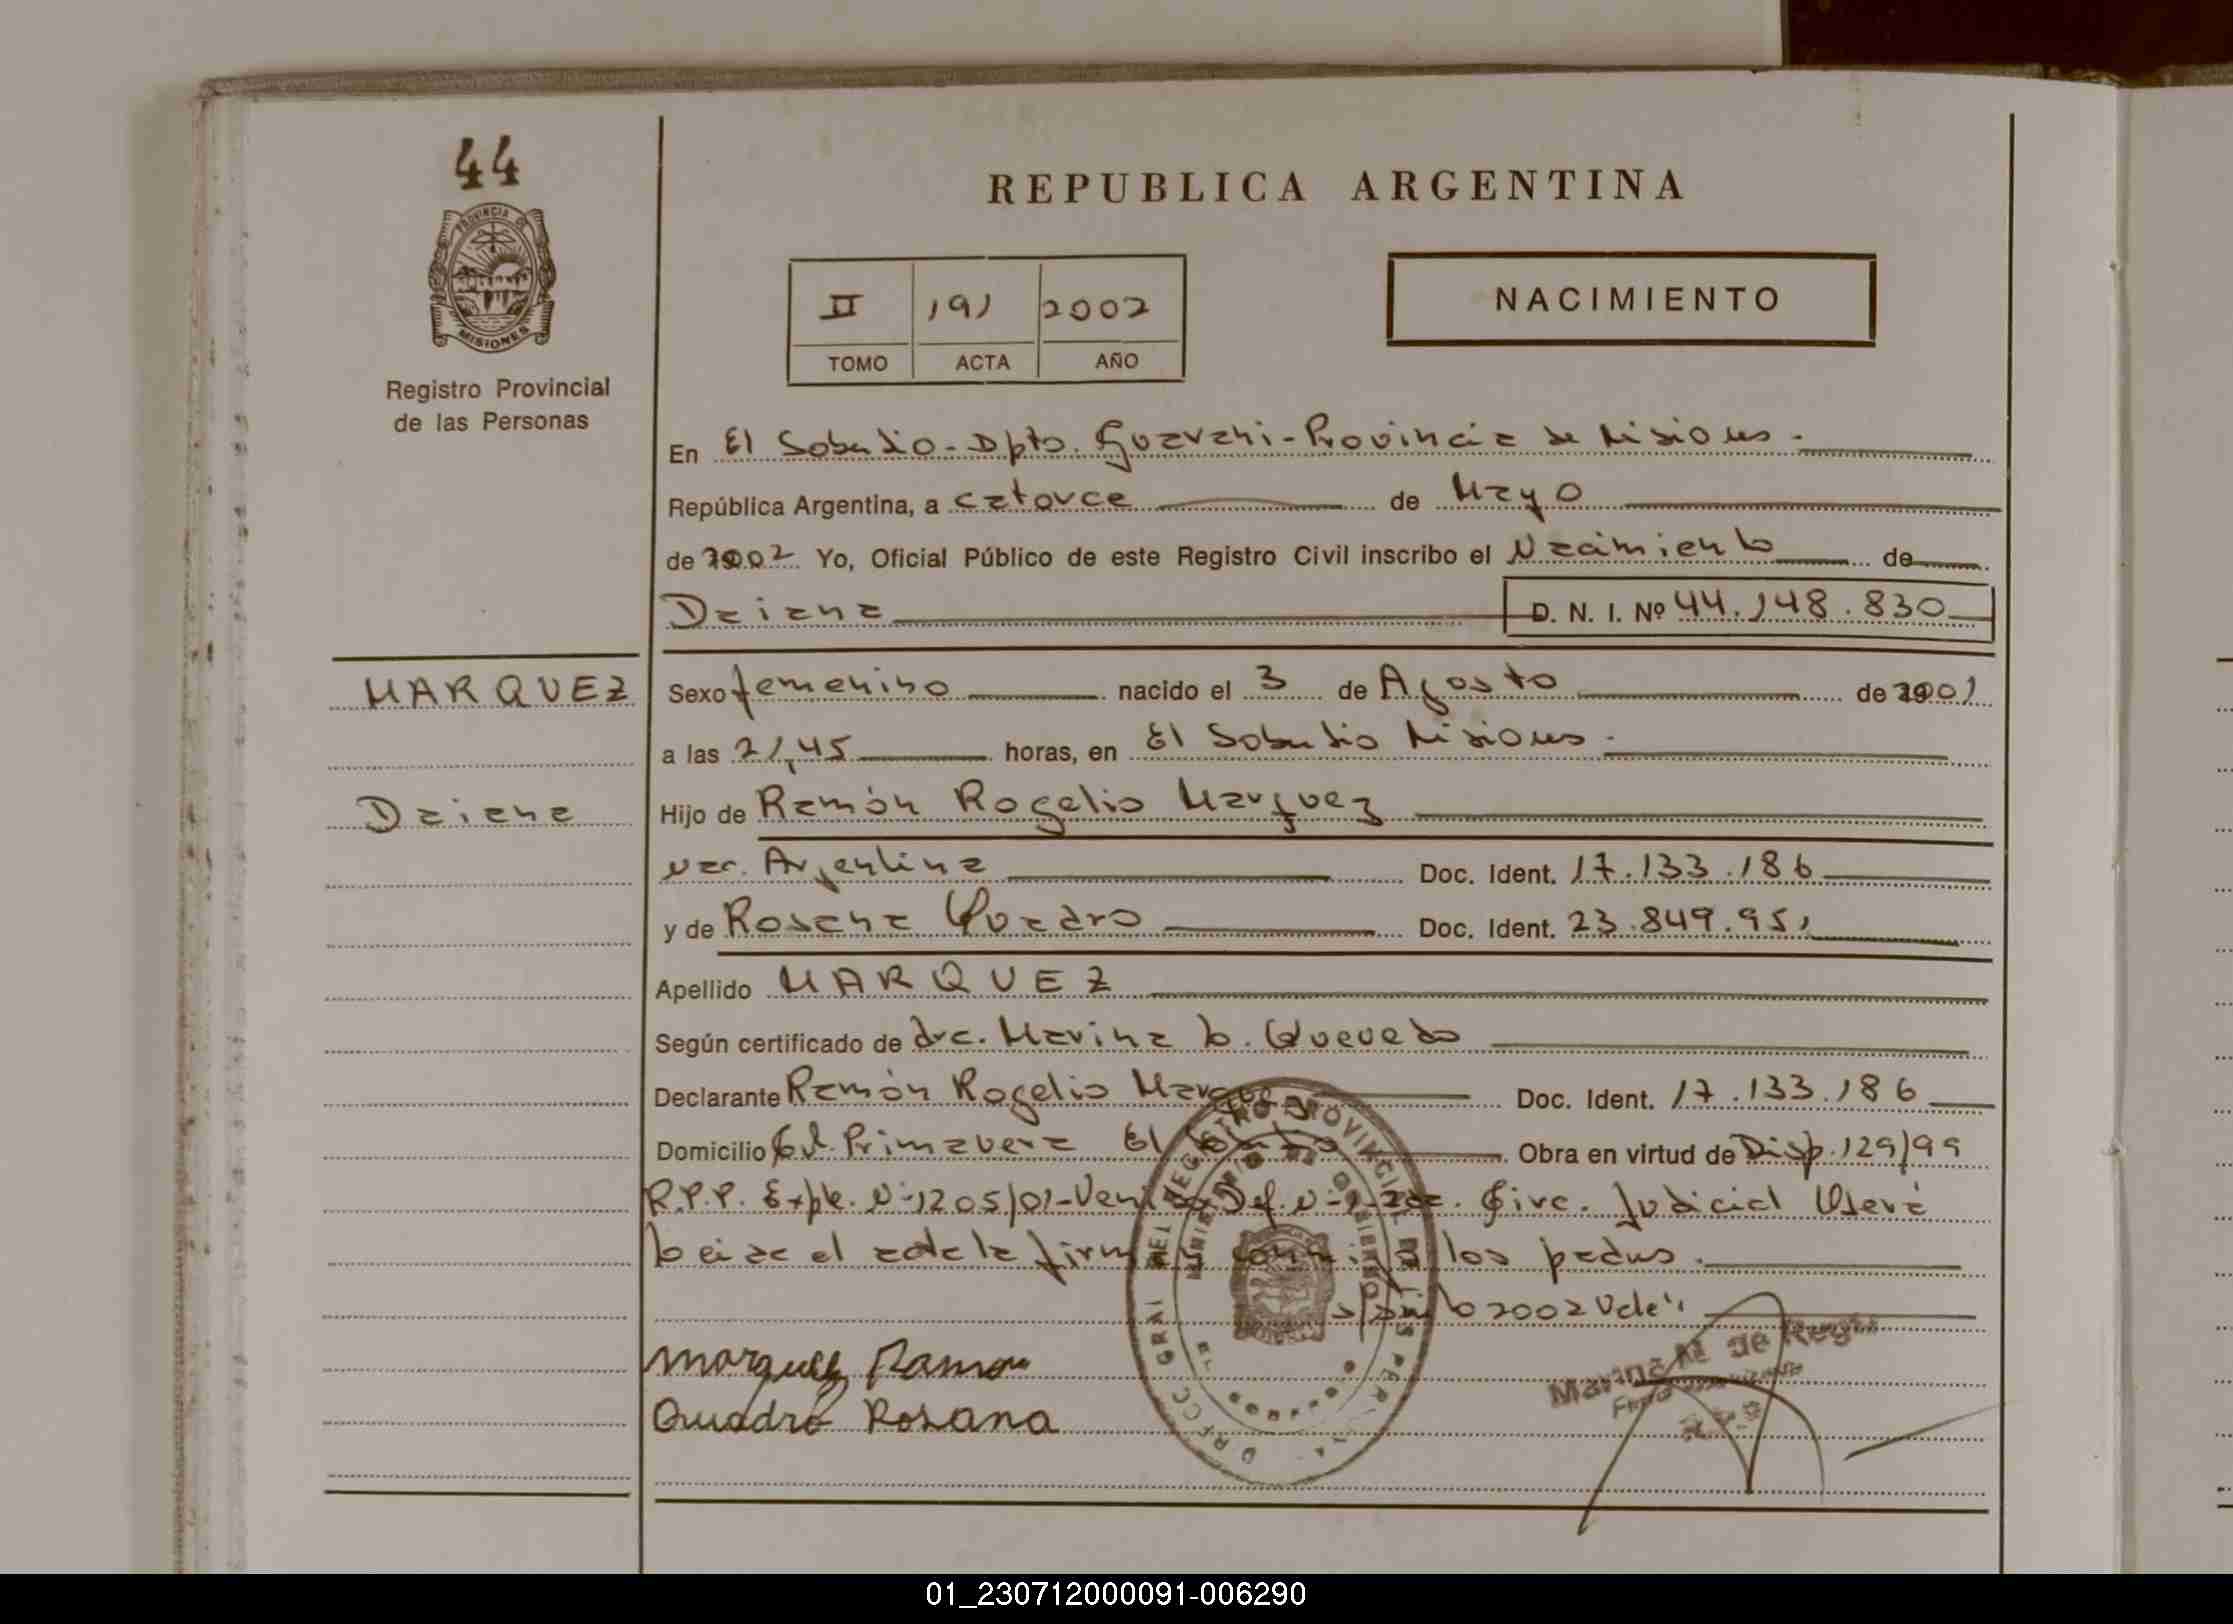 44
PROVINCIA DE
MISIONES
Registro Provincial
de las Personas
REPUBLICA ARGENTINA
II 191 2002
TOMO ACTA AÑO
NACIMIENTO
En El Soberbio - Dpto. Guarani - Provincia de Misiones -
República Argentina, a catorce de Mayo
de 2002 Yo, Oficial Público de este Registro Civil inscribo el Nacimiento de
Daiana D. N. I. Nº 44.148.830
MARQUEZ
Sexo femenino nacido el 3 de Agosto de 2001
a las 21,45 horas, en El Soberbio Misiones -
Daiana
Hijo de Ramón Rogelio Marquez
nac. Argentina Doc. Ident. 17.133.186
y de Rosana Quadro Doc. Ident. 23.849.951
Apellido MARQUEZ
Según certificado de dra. Marina b. Quevedo
Declarante Ramón Rogelio Marquez Doc. Ident. 17.133.186
Domicilio Col. Primavera El Obra en virtud de Disp. 129/99
R.P.P. Expte. Nº 1205/01 - Def. Nº Circ. Judicial Oberá
el acta la los padres.
2002 Vale
Marquez Ramon
Quadro Rosana
Marina de
01_230712000091-006290